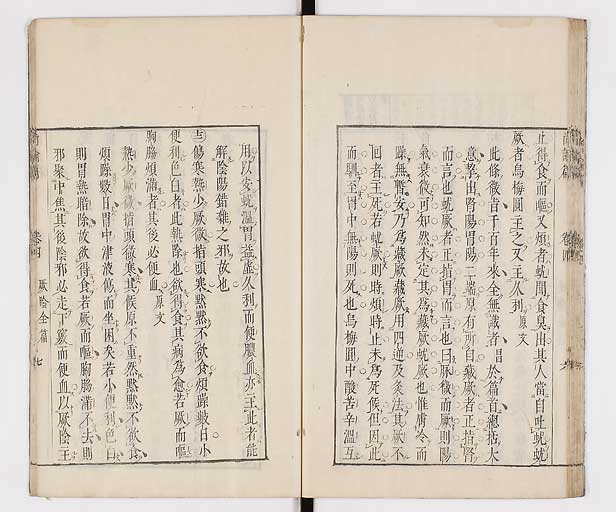 止得食而嘔又煩者蚘聞食臭出其人當自吐蚘蚘
厥者烏梅圓主之又主久利 原文
此條微旨千百年來全無識者昌於篇首總括大
意挈出腎陽胃陽二端原有所自藏厥者正指腎
而言也蚘厥者正指胃而言也曰脉微而厥則陽
氣衰微可知然未定其爲藏厥蚘厥也惟膚冷而
躁無暫安乃爲藏厥藏厥用四逆及灸法其厥不
回者主死若蚘厥則時煩時止未爲死候但因此
而馴至胃中無陽則死也烏梅圓中酸苦辛溫互
用以安蚘溫胃益虛久利而便膿血亦主此者能
解陰陽錯雜之邪故也
傷寒熱少厥微指頭寒默默不欲食煩躁數日小
便利色白者此熱除也欲得食其病爲愈若厥而嘔
胸脇煩滿者其後必便血 原文
熱少厥微指頭微寒其候原不重然默默不欲食
煩躁數日胃中津液傷而坐困矣若小便利色白
則胃熱暗除故欲得食若厥而嘔胸脇滿不去則
邪聚中焦其後陰邪必走下竅而便血以厥陰主
卷四
厥陰全篇
七